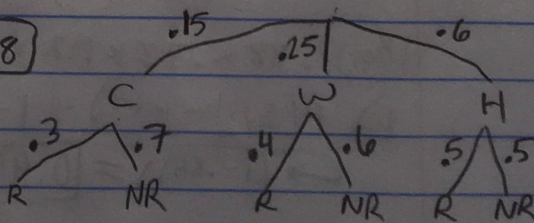 .15 .6
8 .25
C W H
.3 .7 .4 .6 .5 .5
R NR R NR R NR